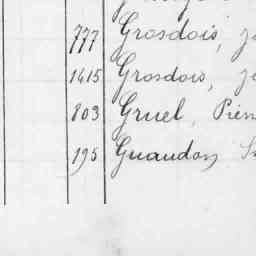 777 Grosdois,
1415 Grosdois,
803 Gruel,
195 Guaudon